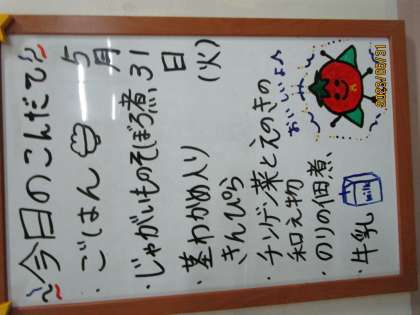 今日のこんだて
5月31日(火)
・ごはん
・じゃがいものそぼろ煮
・茎わかめ入り
きんぴら
・チンゲン菜とえのきの
和え物
・のりの佃煮
・牛乳
milk
おいしいよ〜